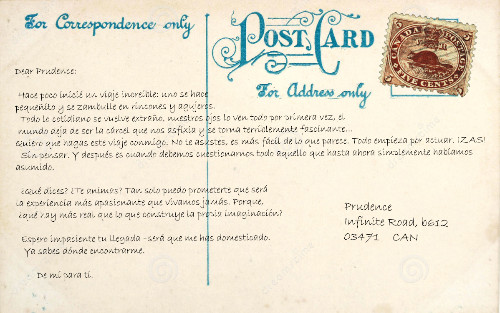 For Correspondence only
POST CARD
For Address only
CANADA POSTAGE
FIVE CENTS
Dear Prudence:
Hace poco inicié un viaje increíble: uno se hace
pequeñito y se zambulle en rincones y agujeros.
Todo lo cotidiano se vuelve extraño, nuestros ojos lo ven todo por primera vez, el
mundo deja de ser la cárcel que nos asfixia y se torna terriblemente fascinante...
Quiero que hagas este viaje conmigo. No te asustes, es más fácil de lo que parece. Todo empieza por actuar. ¡ZAS!
Sin pensar. Y después es cuando debemos cuestionarnos todo aquello que hasta ahora simplemente habíamos
asumido.
¿Qué dices? ¿Te animas? Tan solo puedo prometerte que será
la experiencia más apasionante que vivamos jamás. Porque,
¿qué hay más real que lo que construye la propia imaginación?
Espero impasiente tu llegada - será que me has domesticado.
Ya sabes dónde encontrarme.
De mí para ti.
Prudence
Infinite Road, b612
03471 CAN